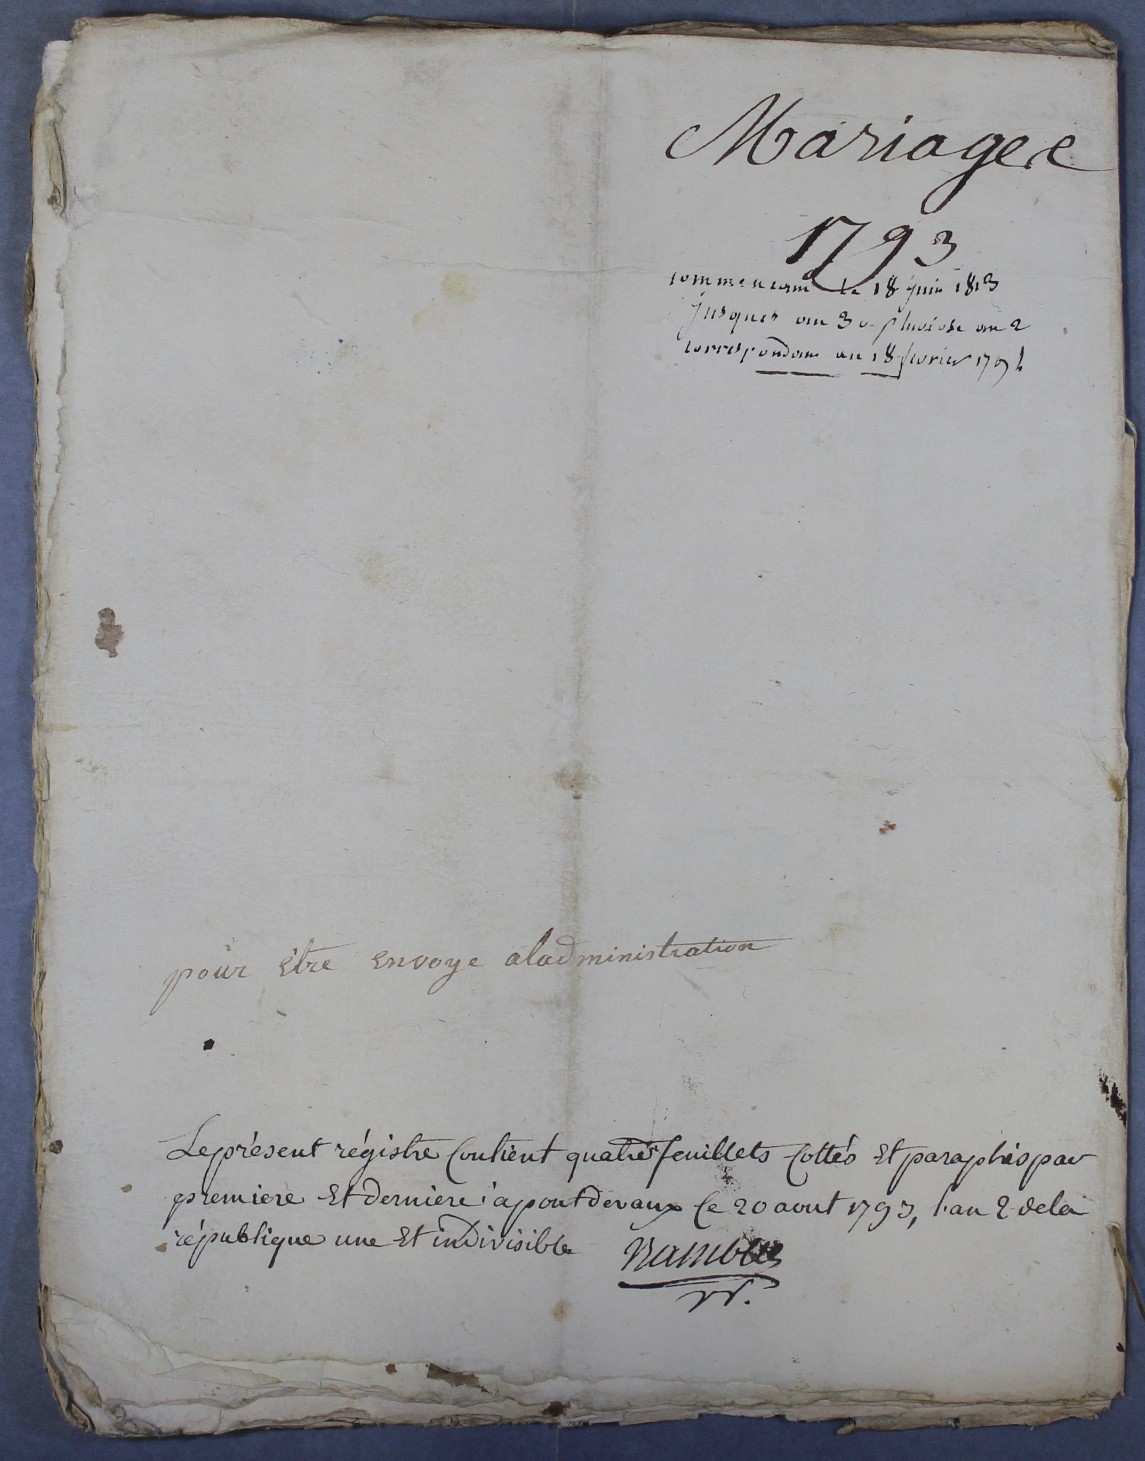 Mariages
1793
commencant le 18 juin 1813
jusques au 30 pluviose an 2
correspondant au 18 fevrier 1794
pour être envoye aladministration
Le présent régistre Contient quatre feuillets Cottés et paraphés par
premiere et derniere à pontdevaux Ce 20 aout 1793, l'an 2 dela
république une et indivisible